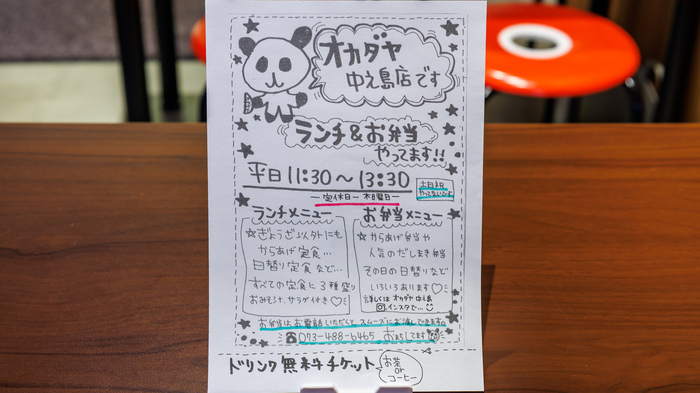 オカダヤ
中之島店です
ランチ&お弁当
やってます!!
平日 11:30〜13:30
土日祝
やってないです
ー定休日ー 木曜日ー
ランチメニュー
☆ぎょうざ以外にも
からあげ定食…
日替り定食など…
すべての定食に3種盛り
おみそ汁、サラダ付き♡
お弁当メニュー
☆からあげ弁当や
人気のだしまき弁当
その日の日替りなど
いろいろあります♡
詳しくはオカダヤ中之島
インスタで…
お弁当はお電話いただくとスムーズにお渡しできます。
☎073-488-6465 お待ちしてます
ドリンク無料チケット
お茶
or
コーヒー